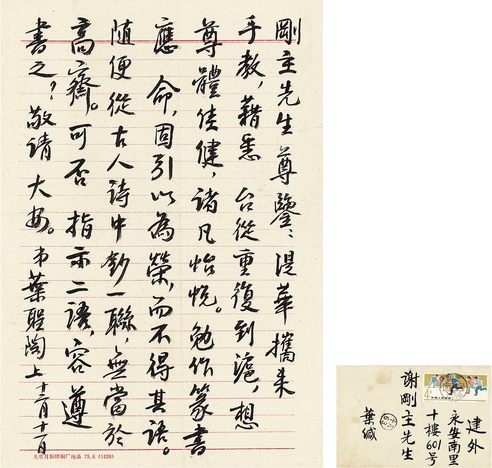 剛主先生尊鑒：湜華攜来
手教，藉悉　台從重復到滬，想
尊體佳健，諸凡怡悅。勉作篆書
應　命，固引以為榮，而不得其語。
随便從古人詩中鈔一聯，無當於
高齋。可否　指示二語，容　遵
書之？敬請　大安。弟葉聖陶上　十二月十一日
北京月坛印刷厂出品　75.6　(1328)
建外
永安南里
十樓601号
謝剛主先生
葉緘